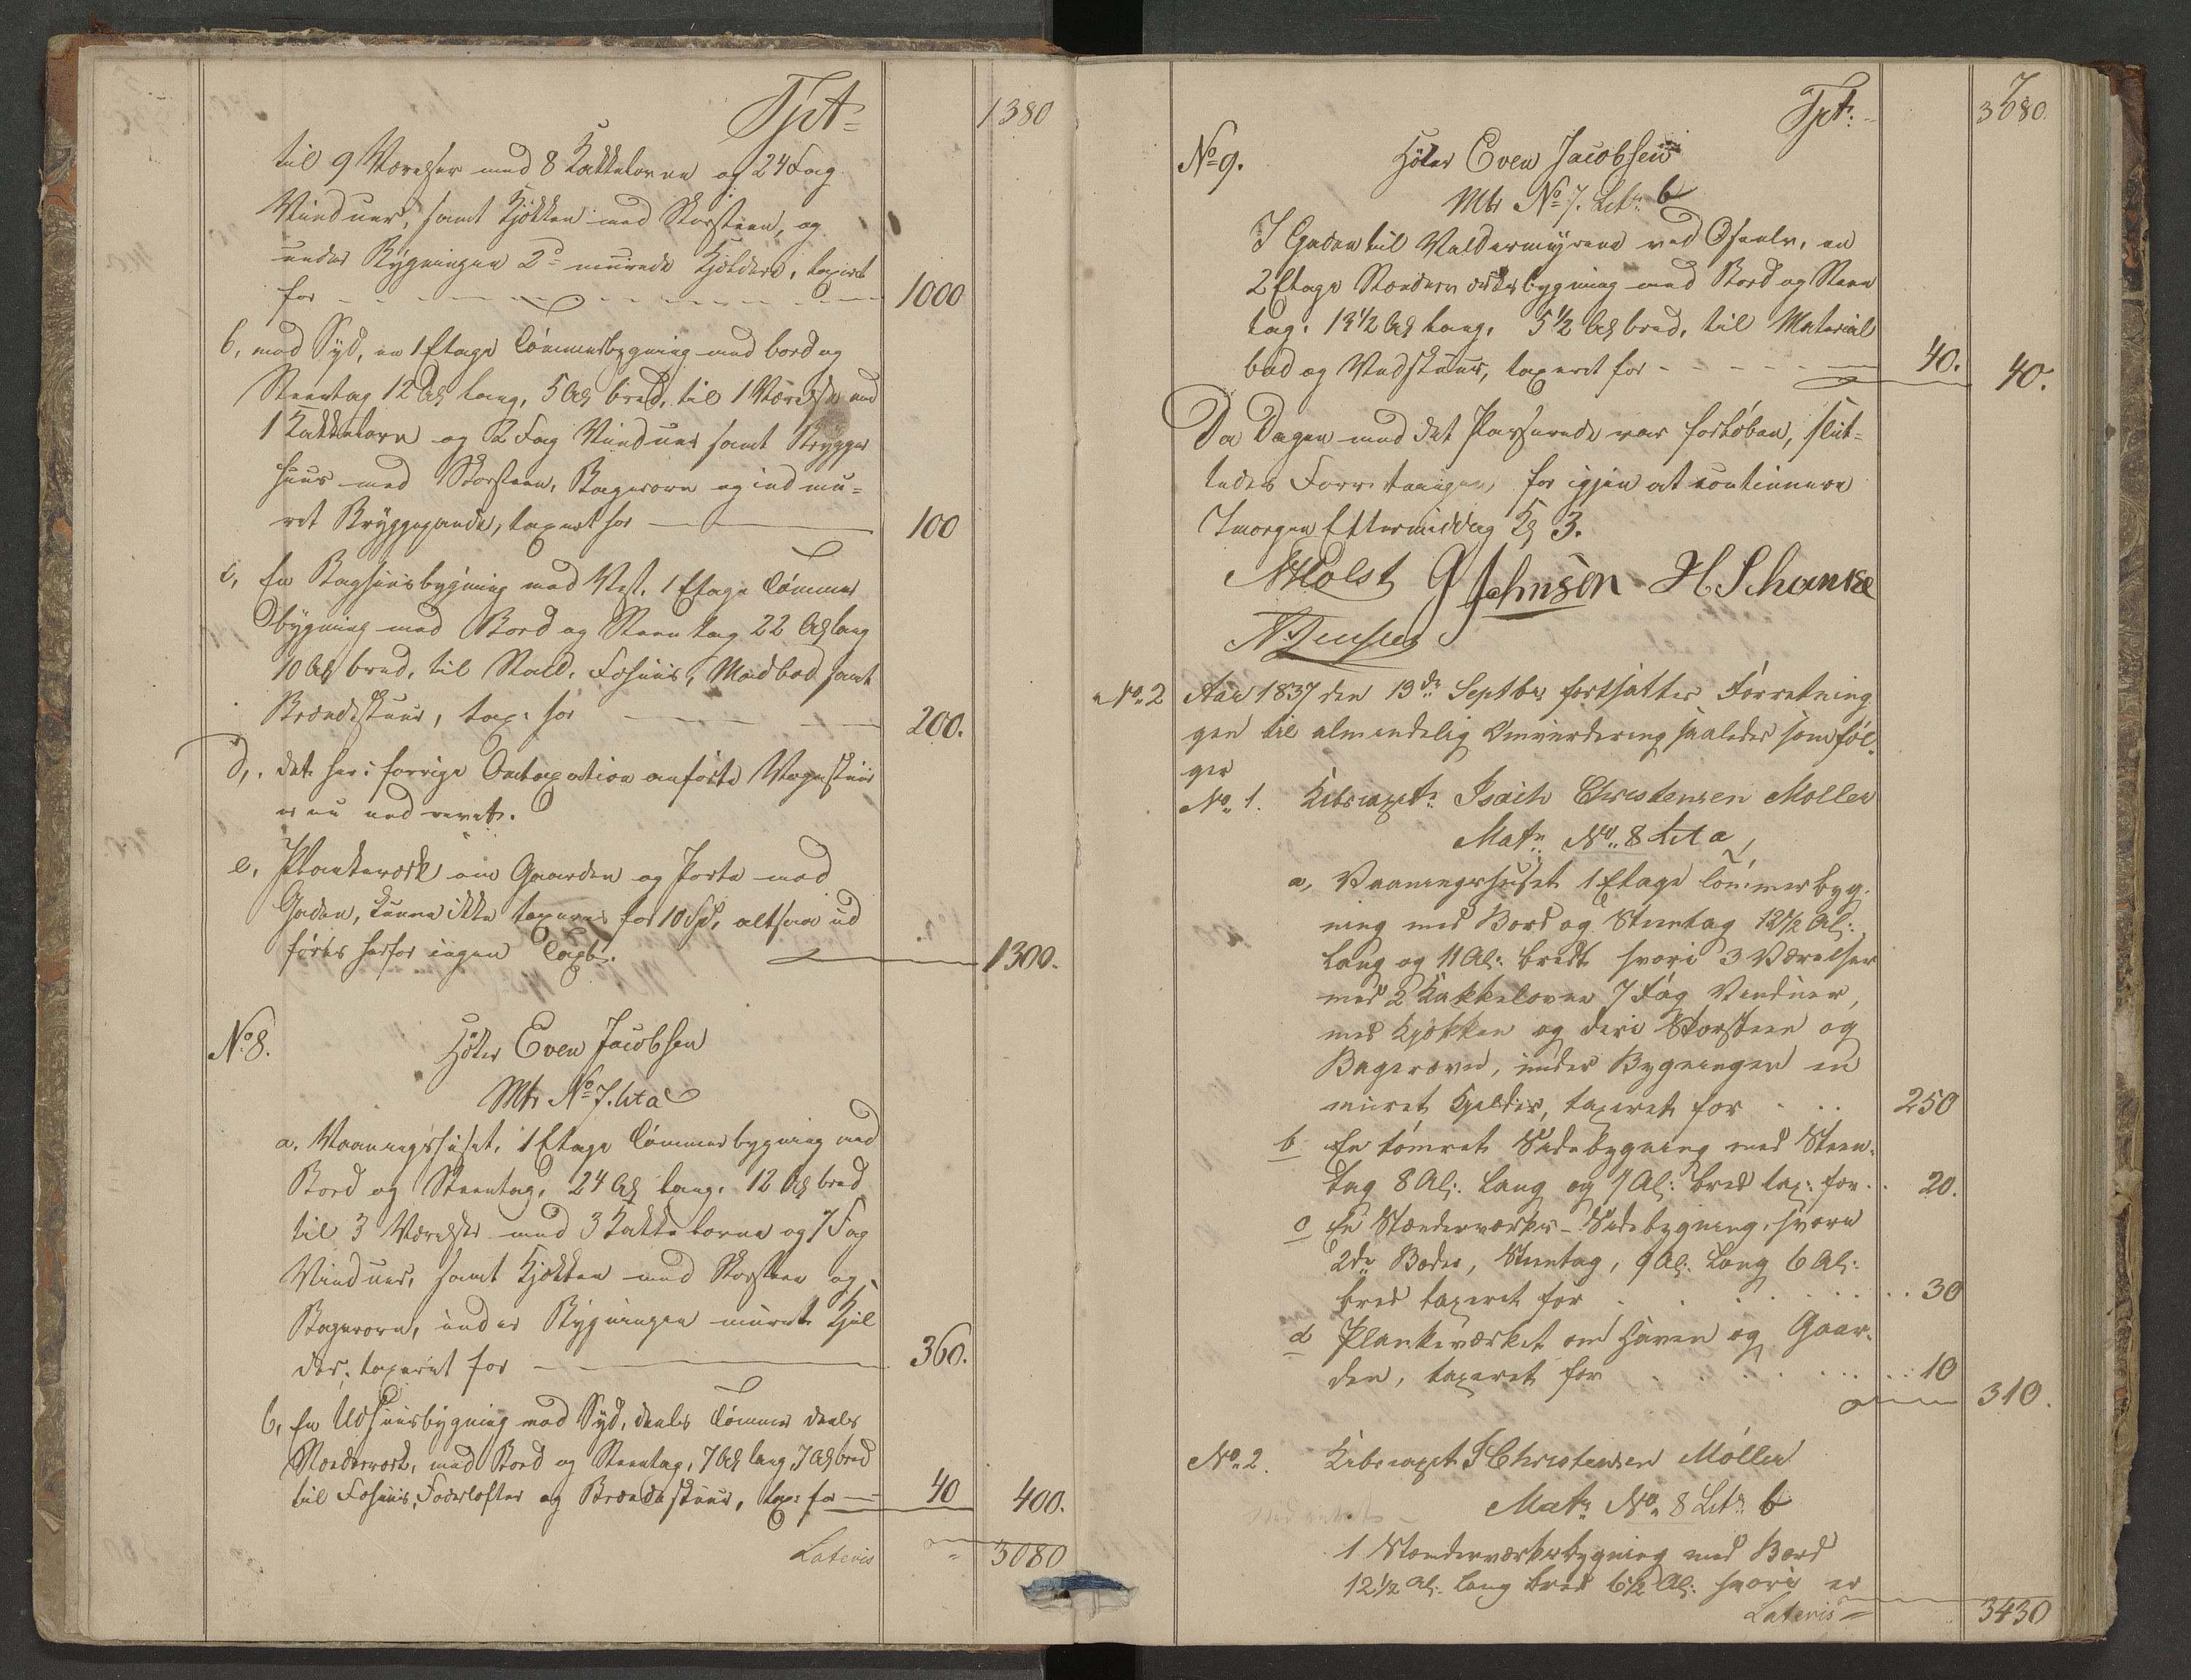 Tpt= 1380
til 9 Værelser med 8 Kakkelovne og 24 Fag
Vinduer, samt Kjøkken med Skorsteen, og
under Bygningen 2de murede Kjeldere, taxeret
for 1000
b, mod Syd, en 1 Etage Tømmerbygning med bord og
Steentag 12 Al lang, 5 Al bred, til 1 Værelse med
1 Kakkelovn og 2 Fag Vinduer samt Brygger
huus med Skorsteen, Bagerovn og indmu=
ret Bryggepande, taxeret for 100
c, En Baghuusbygning mod Vest, 1 Etage Tømmer
bygning med Bord og Steentag 22 Al lang
10 Al bred, til Stald, Fæhuus, Madbod samt
Brændeskuur, tax: for 200.
d, det her i forrige Omtaxation anførte Vognskuur
er nu nedrevet.
e, Plankeværk om Gaarden og Porte mod
Gaden, kunne ikke taxeres for 10 Spd, altsaa ud
føres herfor ingen Taxt. 1300.
No 8. Even Jacobsen
Mtr No 7. Lit a
a. Vaaningshuset, 1 Etage Tømmerbygning med
Bord og Steentag, 24 Al lang, 12 Al bred
til 3 Værelser med 3 Kakkelovne og 7 Fag
Vinduer, samt Kjøkken med Skorsteen og
Bagerovn, under Bygningen muret Kjel
der, taxeret for 360.
b, En Udhuusbygning mod Syd, deels Tømmer deels
Stenderværk, med Bord og Steentag, 7 Al lang 7 Al bred
til Fæhuus, Foderlofter og Brændeskuur, tax: for 40 400.
Lateris = 3080
Tpt: 3080.
7
No 9. Even Jacobsen
Mtr No 7. Litr b
I Gaden til Valdermyrene ved Osealv, en
2 Etage Stænderværksbygning med Bord og Steen
tag, 13 1/2 Al lang, 5 1/2 Al bred, til Material
bod og Vedskuur, taxeret for 40. 40.
Da Dagen med det Passerede var forløben, slut=
tedes Forretningen for igjen at continuere
Imorgen Eftermiddag Kl 3.
NHolst G Johnsen H. Schanke
No. 2 Aar 1837 den 19de Septbr fortsattes Forretnin
gen til almindelig Omvurdering saaledes som føl-
ger
No. 1. Isach Christensen Møller
Matr No. 8 Lit a,
a, Vaaningshuset 1 Etage Tømmerbyg-
ning med Bord og Steentag 12 1/2 Al:
lang og 11 Al: bredt hvori 3 Værelser
med 2 Kakkelovne 7 Fag Vinduer,
med Kjøkken og deri Skorsteen og
Bagerovn, under Bygningen en
muret Kjelder, taxeret for 250
b En tømret Sidebygning med Steen-
tag 8 Al: lang og 7 Al: bred tax: for 20.
c En Stænderværks-Sidebygning, hvori
2de Boder, Steentag, 9 Al: lang 6 Al:
bred taxeret for 30
d Plankeværket om Haven og Gaar-
den, taxeret for 10
310.
No. 2. I Christensen Møller
Matr No. 8 Litr b
1 Stænderværksbygning med Bord
12 1/2 Al: lang bred 6 1/2 Al: hvori er
Lateris 3430